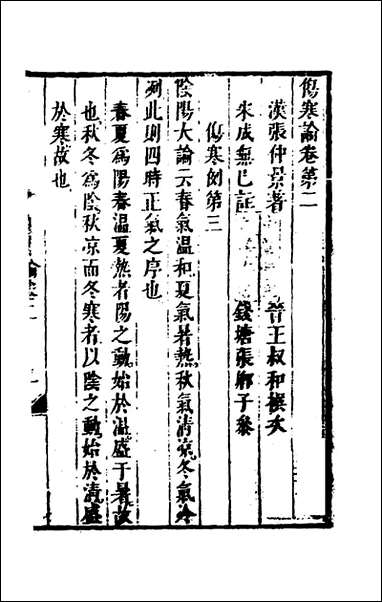 傷寒論卷第二
漢張仲景著 晉王叔和撰次
宋成無已註 錢塘張卿子參
傷寒例第三
陰陽大論云春氣溫和夏氣暑熱秋氣清凉冬氣冷
冽此則四時正氣之序也
春夏爲陽春溫夏熱者陽之動始於溫盛于暑故
也秋冬爲陰秋凉而冬寒者以陰之動始於清盛
於寒故也